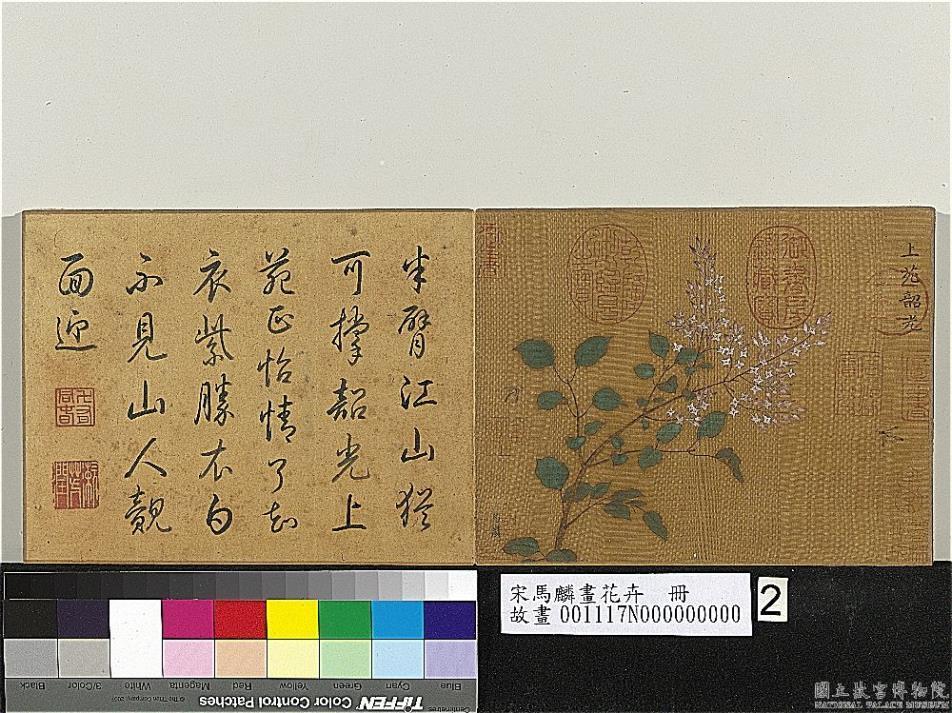 上苑韶光
半臂江山猶
可撐韶光上
苑正怡情了知
衣紫勝衣白
不見山人覿
面迎
宋馬麟畫花卉 冊
故畫 001117N000000000
2
Blue Cyan Green Yellow Red Magenta White 3/Color Black
TIFFEN Color Control Patches
© The Tiffen Company
Centimetres
國立故宮博物院
NATIONAL PALACE MUSEUM